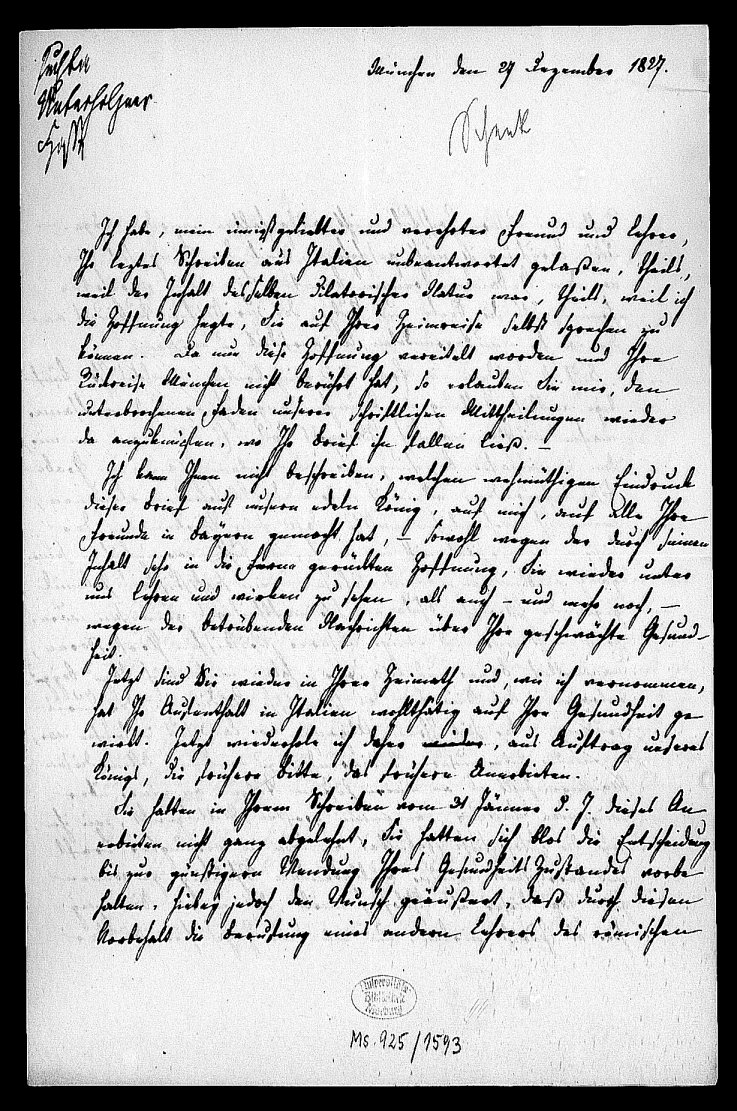 Puchta
Unterholzner
Hasse
München den 27 Dezember 1827.
Schenk
Ich habe, mein innigstgeliebter und verehrter Freund und Lehrer,
Ihr leztes Schreiben aus Italien unbeantwortet gelaßen, theils,
weil der Inhalt desselben dilatorischer Natur war, theils, weil ich
die Hoffnung hegte, Sie auf Ihrer Heimreise selbst sprechen zu
können. Da nun diese Hoffnung vereitelt worden und Ihre
Rückreise München nicht berührt hat, so erlauben Sie mir, den
unterbrochenen Faden unserer schriftlichen Mittheilungen wieder
da anzuknüpfen, wo Ihr Brief ihn fallen ließ. –
Ich kann Ihnen nicht beschreiben, welchen wehmüthigen Eindruck
dieser Brief auf unsern edeln König, auf mich, auf alle Ihre
Freunde in Bayern gemacht hat – sowohl wegen der durch seinen
Inhalt sehr in die Ferne gerückten Hoffnung, Sie wieder unter
uns lehren und wirken zu sehen, als auch – und mehr noch, –
wegen der betrübenden Nachrichten über Ihre geschwächte Gesund-
heit.
Jetzt sind Sie wieder in Ihrer Heimath und, wie ich vernommen,
hat Ihr Aufenthalt in Italien wohlthätig auf Ihre Gesundheit ge-
wirkt. Jetzt wiederhole ich daher wieder, aus Auftrag unseres
Königs, die frühere Bitte, das frühere Anerbieten.
Sie hatten in Ihrem Schreiben vom 31 Jänner d. J. dieses An-
erbieten nicht ganz abgelehnt, Sie hatten sich blos die Entscheidung
bis zur günstigern Wendung Ihres Gesundheits Zustandes vorbe-
halten, hiebey jedoch den Wunsch geäußert, daß durch diesen
Vorbehalt die Berufung eines andern Lehrers des römischen
Universitäts-
Bibliothek
Marburg
Ms. 925/1593